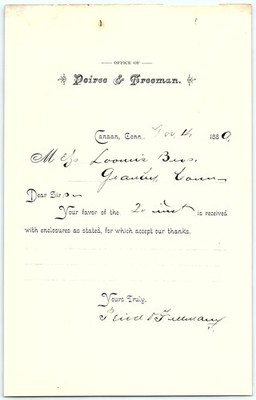 OFFICE OF
Peirce & Freeman.
Canaan, Conn. Nov 14 1880,
Mess Loomis Bros.
Granby Conn
Dear Sirs
Your favor of the 2 inst is received
with enclosures as stated, for which accept our thanks.
Yours Truly,
Peirce & Freeman